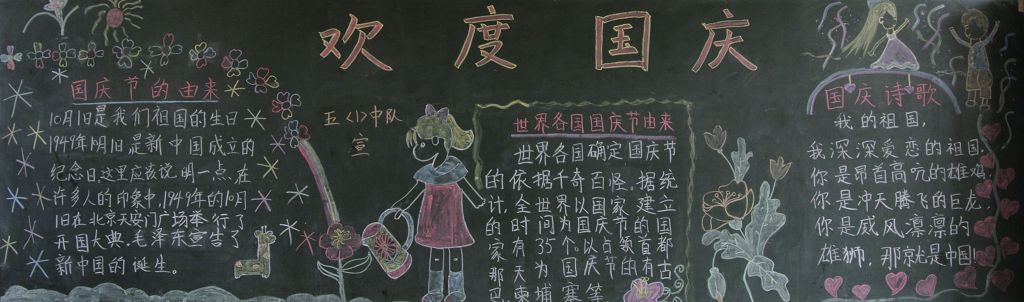 欢度国庆
国庆节的由来
10月1日是我们祖国的生日
1949年10月1日是新中国成立的
纪念日这里应该说明一点、在
许多人的印象中,1949年的10月
1日在北京天安门广场举行了
开国大典.毛泽东宣告了
新中国的诞生。
五〈1〉中队
宣
世界各国国庆节由来
世界各国确定国庆节
的依据千奇百怪。据统
计,全世界以国家建立
的时间为国庆节的国
家有35个。以首都
那天为国庆节的有古
巴柬埔寨等
国庆诗歌
我的祖国,
我深深爱恋的祖国
你是昂首高吭的雄鸡
你是冲天腾飞的巨龙
你是威风凛凛的
雄狮.那就是中国!